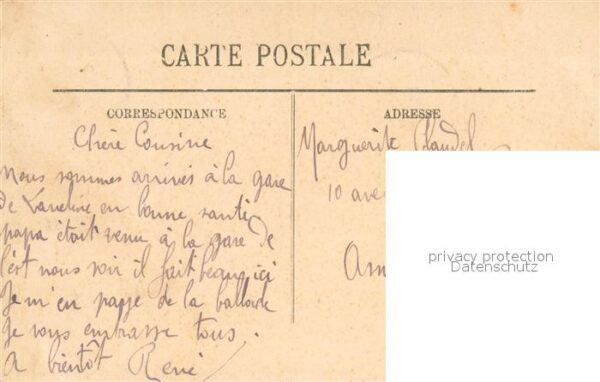 CARTE POSTALE
CORRESPONDANCE
ADRESSE
Chère Cousine
Nous sommes arrivés à la gare
de en bonne santé
papa était venu à la gare de
nous voir il fait beau ici
Je m'en paye de la ballade
Je vous embrasse tous.
A bientôt René
Marguerite Claudel
10 ave
Am
privacy protection
Datenschutz